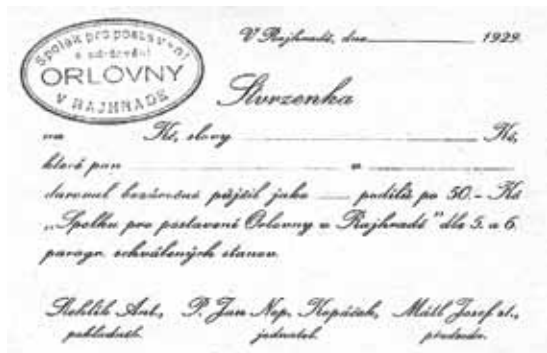 Spolek pro postavení
a udržování
ORLOVNY
V RAJHRADĚ
V Rajhradě, dne 1929.
Stvrzenka
na Kč, slovy Kč,
které pan v
daroval bezúročně půjčil jako podílů po 50.- Kč
„Spolku pro postavení Orlovny v Rajhradě" dle 5. a 6.
paragr. schválených stanov.
Stehlík Ant., P. Jan Nep. Kopáček, Mátl Josef st.,
pokladník. jednatel. předseda.